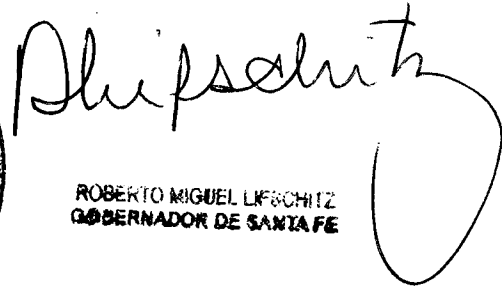 Rlifschitz
ROBERTO MIGUEL LIFSCHITZ
GOBERNADOR DE SANTA FE